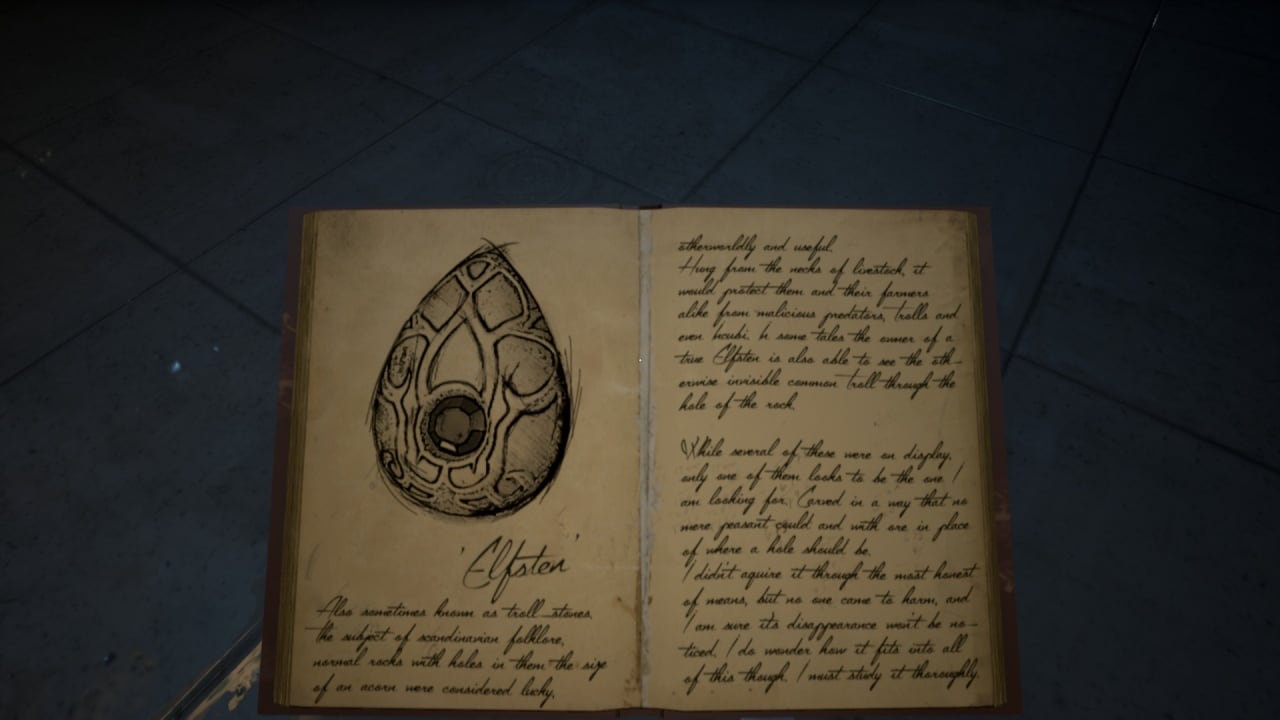 'Elfsten'
Also sometimes known as troll stones,
the subject of scandinavian folklore,
normal rocks with holes in them the size
of an acorn were considered lucky,
otherworldly and useful.
Hung from the necks of livestock, it
would protect them and their farmers
alike from malicious predators, trolls and
even Incubi. In some tales the owner of a
true Elfsten is also able to see the oth-
erwise invisible common troll through the
hole of the rock.
While several of these were on display,
only one of them looks to be the one I
am looking for. Carved in a way that no
mere peasant could and with ore in place
of where a hole should be.
I didn't aquire it through the most honest
of means, but no one came to harm, and
I am sure it's disappearance won't be no-
ticed. I do wonder how it fits into all
of this though. I must study it thoroughly.